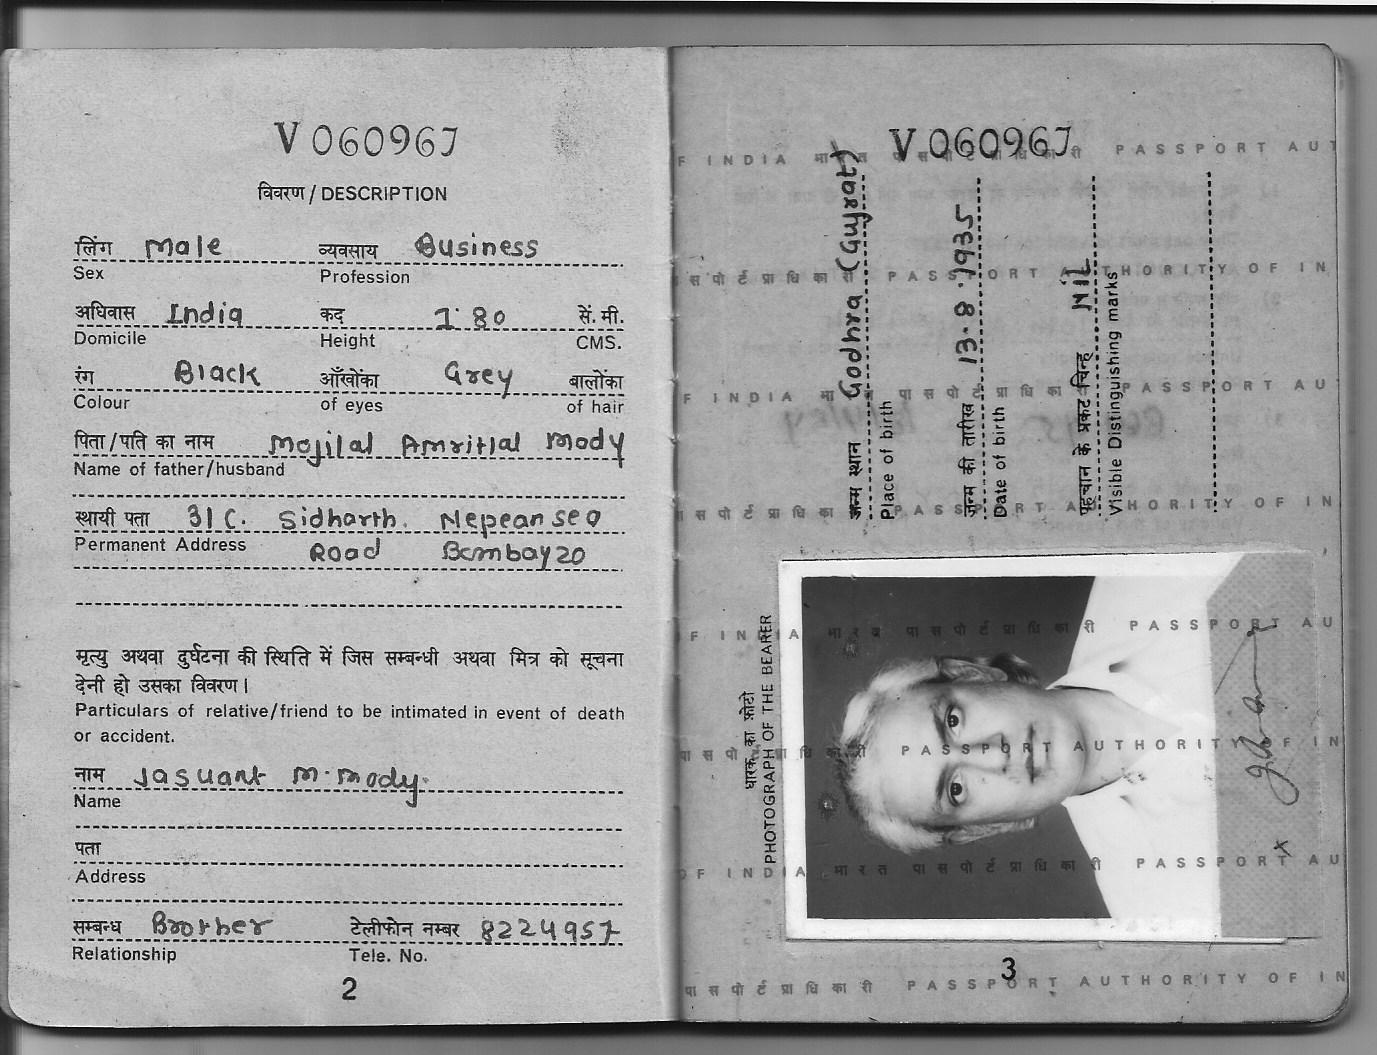 V 060967
विवरण / DESCRIPTION
लिंग Male व्यवसाय Business
Sex Profession
अधिवास India कद 1.80 सें. मी.
Domicile Height CMS.
रंग Black आँखोंका Grey बालोंका
Colour of eyes of hair
पिता / पति का नाम Mojilal Amritlal Mody
Name of father/husband
स्थायी पता 31C. Sidharth. Nepean Sea
Permanent Address Road Bombay 20
मृत्यु अथवा दुर्घटना की स्थिति में जिस सम्बन्धी अथवा मित्र को सूचना
देनी हो उसका विवरण।
Particulars of relative/friend to be intimated in event of death
or accident.
नाम Jasuant M. Mody.
Name
पता
Address
सम्बन्ध Brother टेलीफोन नम्बर 8224957
Relationship Tele. No.
2
V 060967
जन्म स्थान Godhra (Gujrat)
Place of birth
जन्म की तारीख 13.8.1935
Date of birth
पहचान के प्रकट चिन्ह NIL
Visible Distinguishing marks
धारक का फ़ोटो
PHOTOGRAPH OF THE BEARER
OF INDIA भारत पासपोर्ट प्राधिकारी PASSPORT AUTHORITY OF IN
x
3